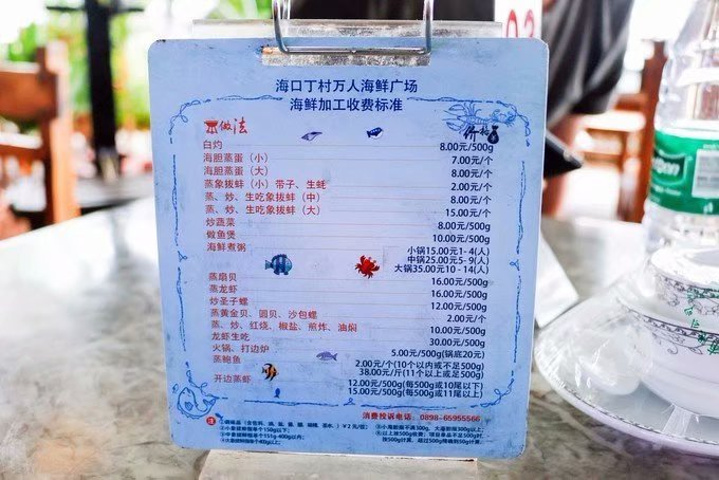 03
海口丁村万人海鲜广场
海鲜加工收费标准
做法 价格
白灼 8.00元/500g
海胆蒸蛋（小） 7.00元/个
海胆蒸蛋（大） 8.00元/个
蒸象拔蚌（小）带子、生蚝 2.00元/个
蒸、炒、生吃象拔蚌（中） 8.00元/个
蒸、炒、生吃象拔蚌（大） 15.00元/个
炒蔬菜 8.00元/500g
做鱼煲 10.00元/500g
海鲜煮粥 小锅15.00元1-4(人)
中锅25.00元5-9(人)
大锅35.00元10-14(人)
蒸扇贝 16.00元/500g
蒸龙虾 16.00元/500g
炒圣子螺 12.00元/500g
蒸黄金贝、圆贝、沙包螺 2.00元/个
蒸、炒、红烧、椒盐、煎炸、油焖 10.00元/500g
龙虾生吃 30.00元/500g
火锅、打边炉 5.00元/500g(锅底20元)
蒸鲍鱼 2.00元/个(10个以内或不足500g)
38.00元/斤(11个以上或足500g)
开边蒸虾 12.00元/500g(每500g或10尾以下)
15.00元/500g(每500g或11尾以上)
消费投诉电话：0898-65955566
注